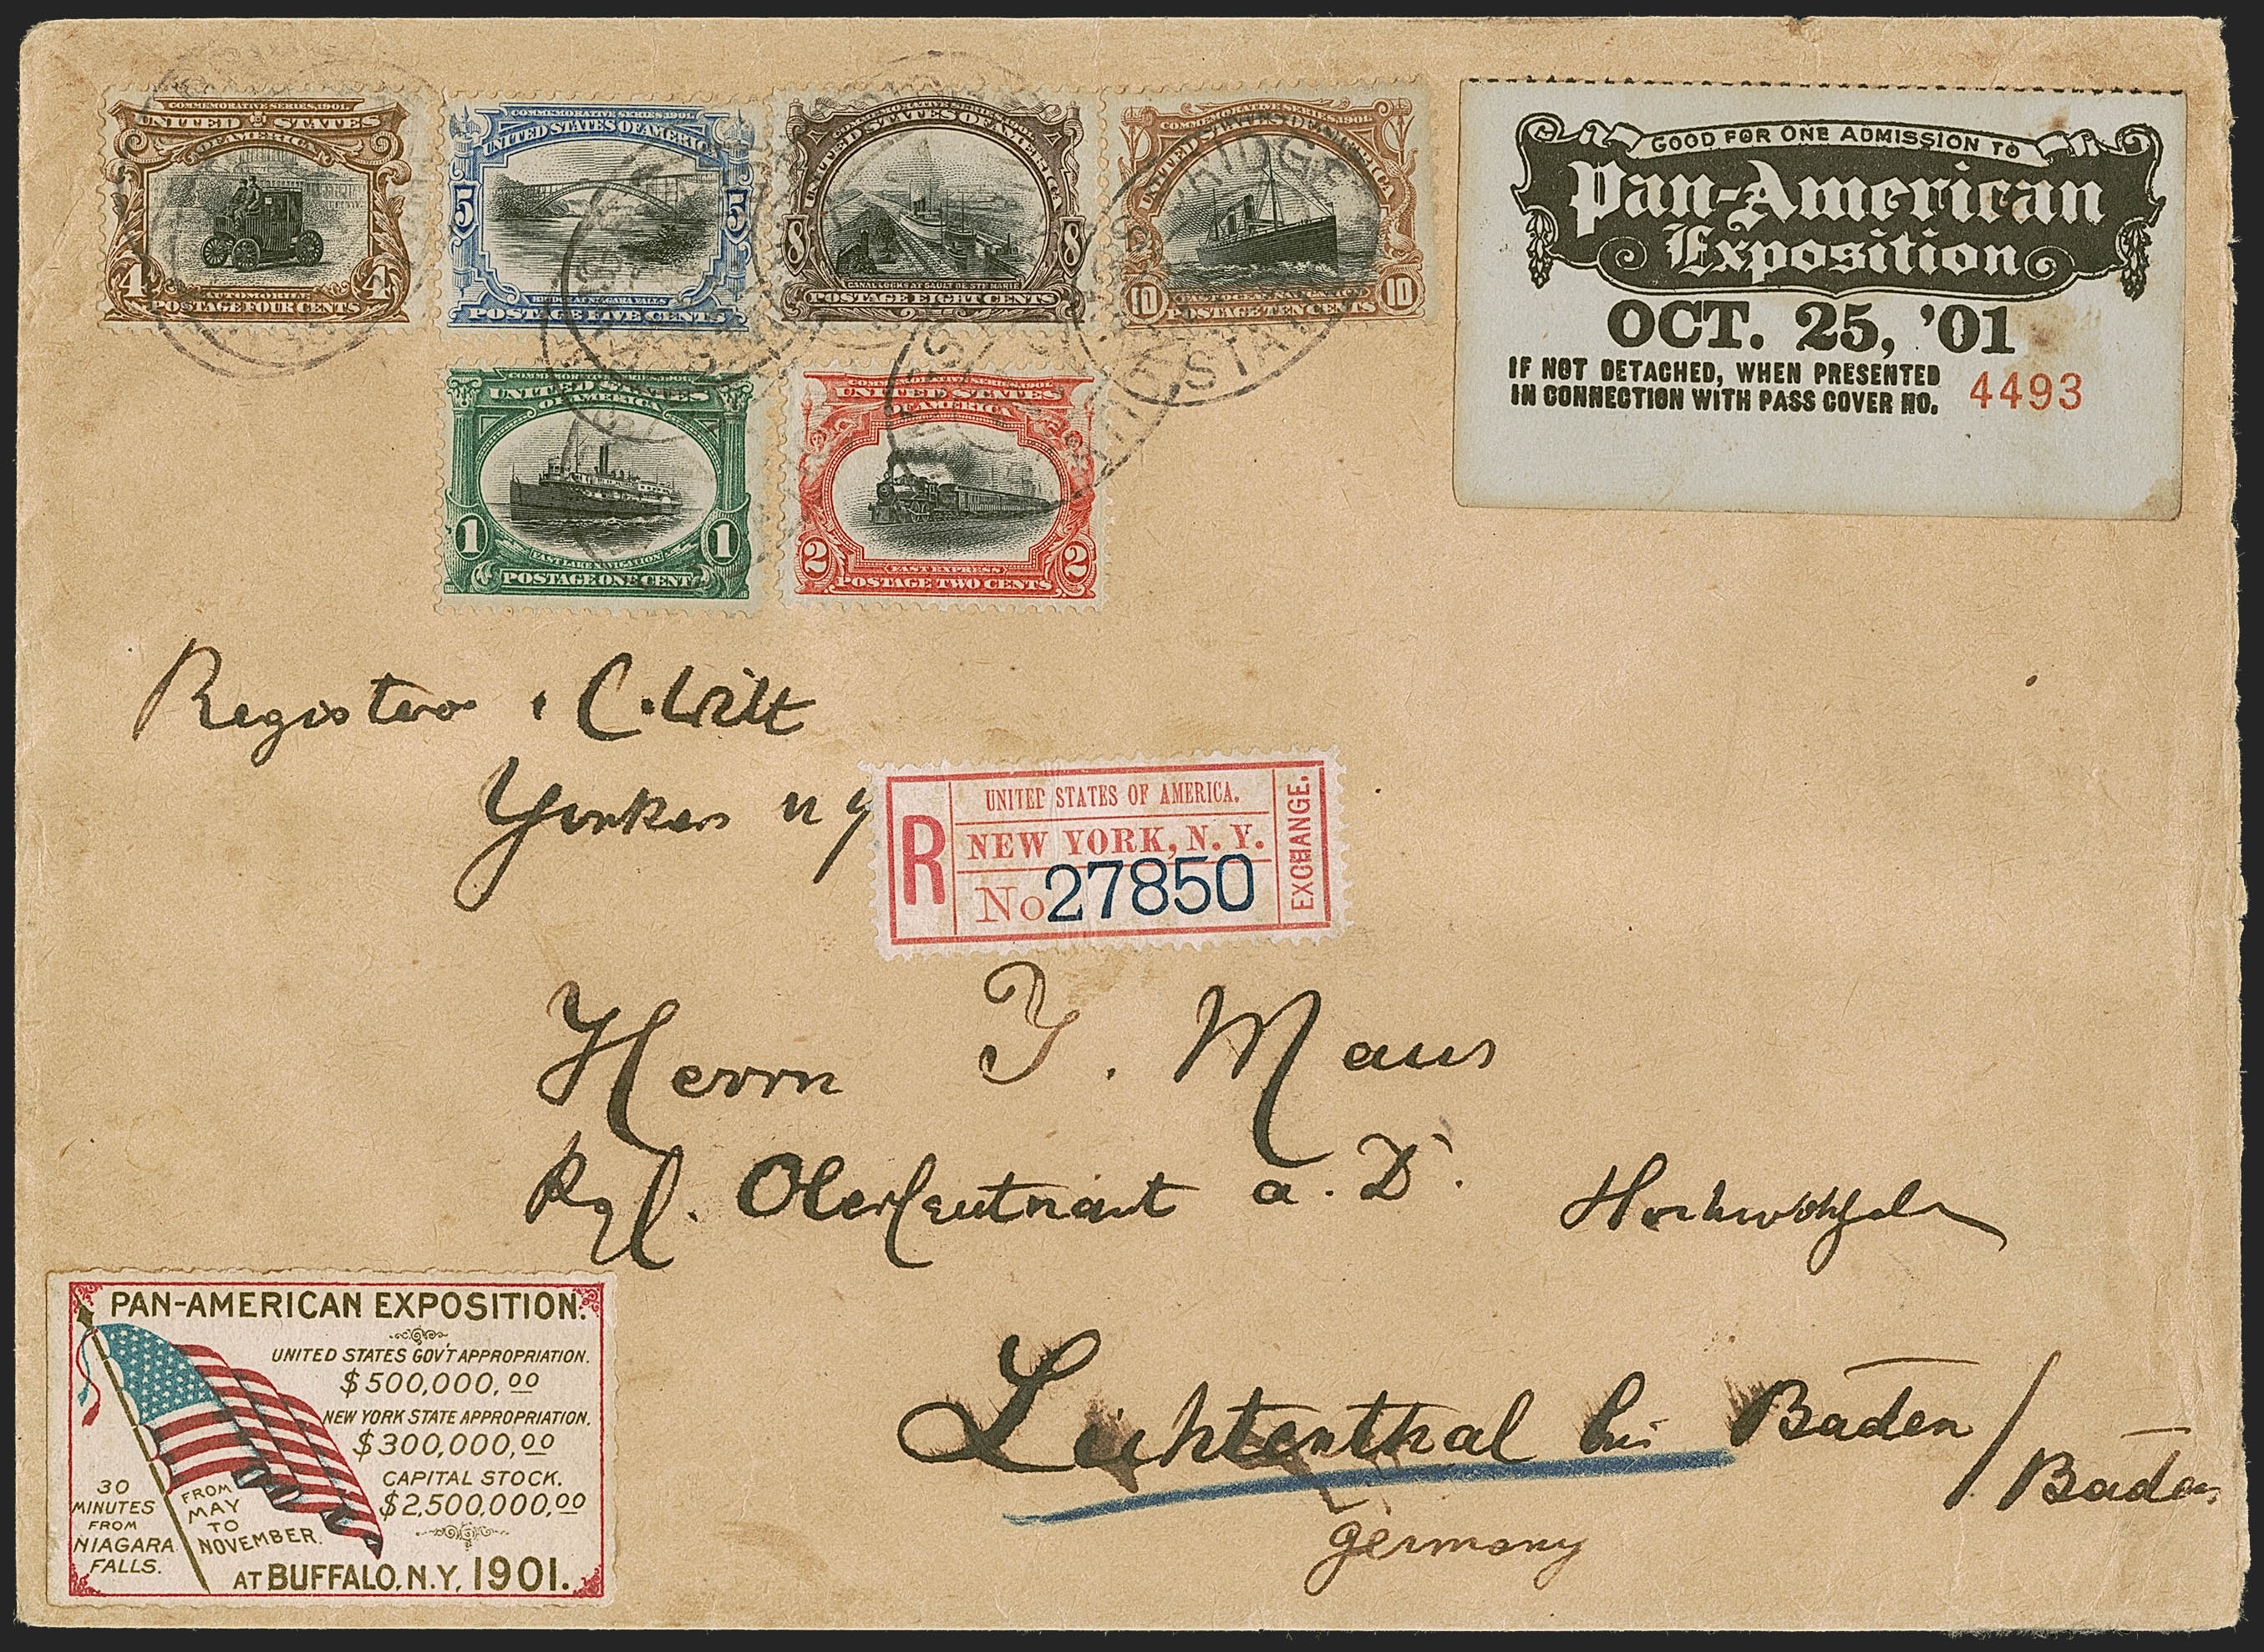 COMMEMORATIVE SERIES, 1901.
UNITED STATES
OF AMERICA
4 4
AUTOMOBILE
POSTAGE FOUR CENTS
COMMEMORATIVE SERIES, 1901.
UNITED STATES OF AMERICA
5 5
BRIDGE AT NIAGARA FALLS
POSTAGE FIVE CENTS
COMMEMORATIVE SERIES, 1901.
UNITED STATES OF AMERICA
8 8
CANAL LOCKS AT SAULT DE STE. MARIE
POSTAGE EIGHT CENTS
COMMEMORATIVE SERIES, 1901.
UNITED STATES OF AMERICA
10 10
FAST OCEAN NAVIGATION
POSTAGE TEN CENTS
GOOD FOR ONE ADMISSION TO
Pan-American
Exposition
OCT. 25, '01
IF NOT DETACHED, WHEN PRESENTED
IN CONNECTION WITH PASS COVER NO. 4493
COMMEMORATIVE SERIES, 1901.
UNITED STATES
OF AMERICA
1 1
FAST LAKE NAVIGATION
POSTAGE ONE CENT
COMMEMORATIVE SERIES, 1901.
UNITED STATES
OF AMERICA
2 2
FAST EXPRESS
POSTAGE TWO CENTS
C. Witt
Yonkers n y
R
UNITED STATES OF AMERICA.
NEW YORK, N. Y.
No 27850
EXCHANGE.
Herrn J. Maus
Kgl. Oberleutnant a. D.
Lichtenthal bei Baden /
Baden
Germany
PAN-AMERICAN EXPOSITION.
UNITED STATES GOV'T APPROPRIATION.
$500,000,00
NEW YORK STATE APPROPRIATION.
$300,000,00
CAPITAL STOCK.
$2,500,000,00
30
MINUTES
FROM
NIAGARA
FALLS.
FROM
MAY
TO
NOVEMBER.
AT BUFFALO, N.Y, 1901.